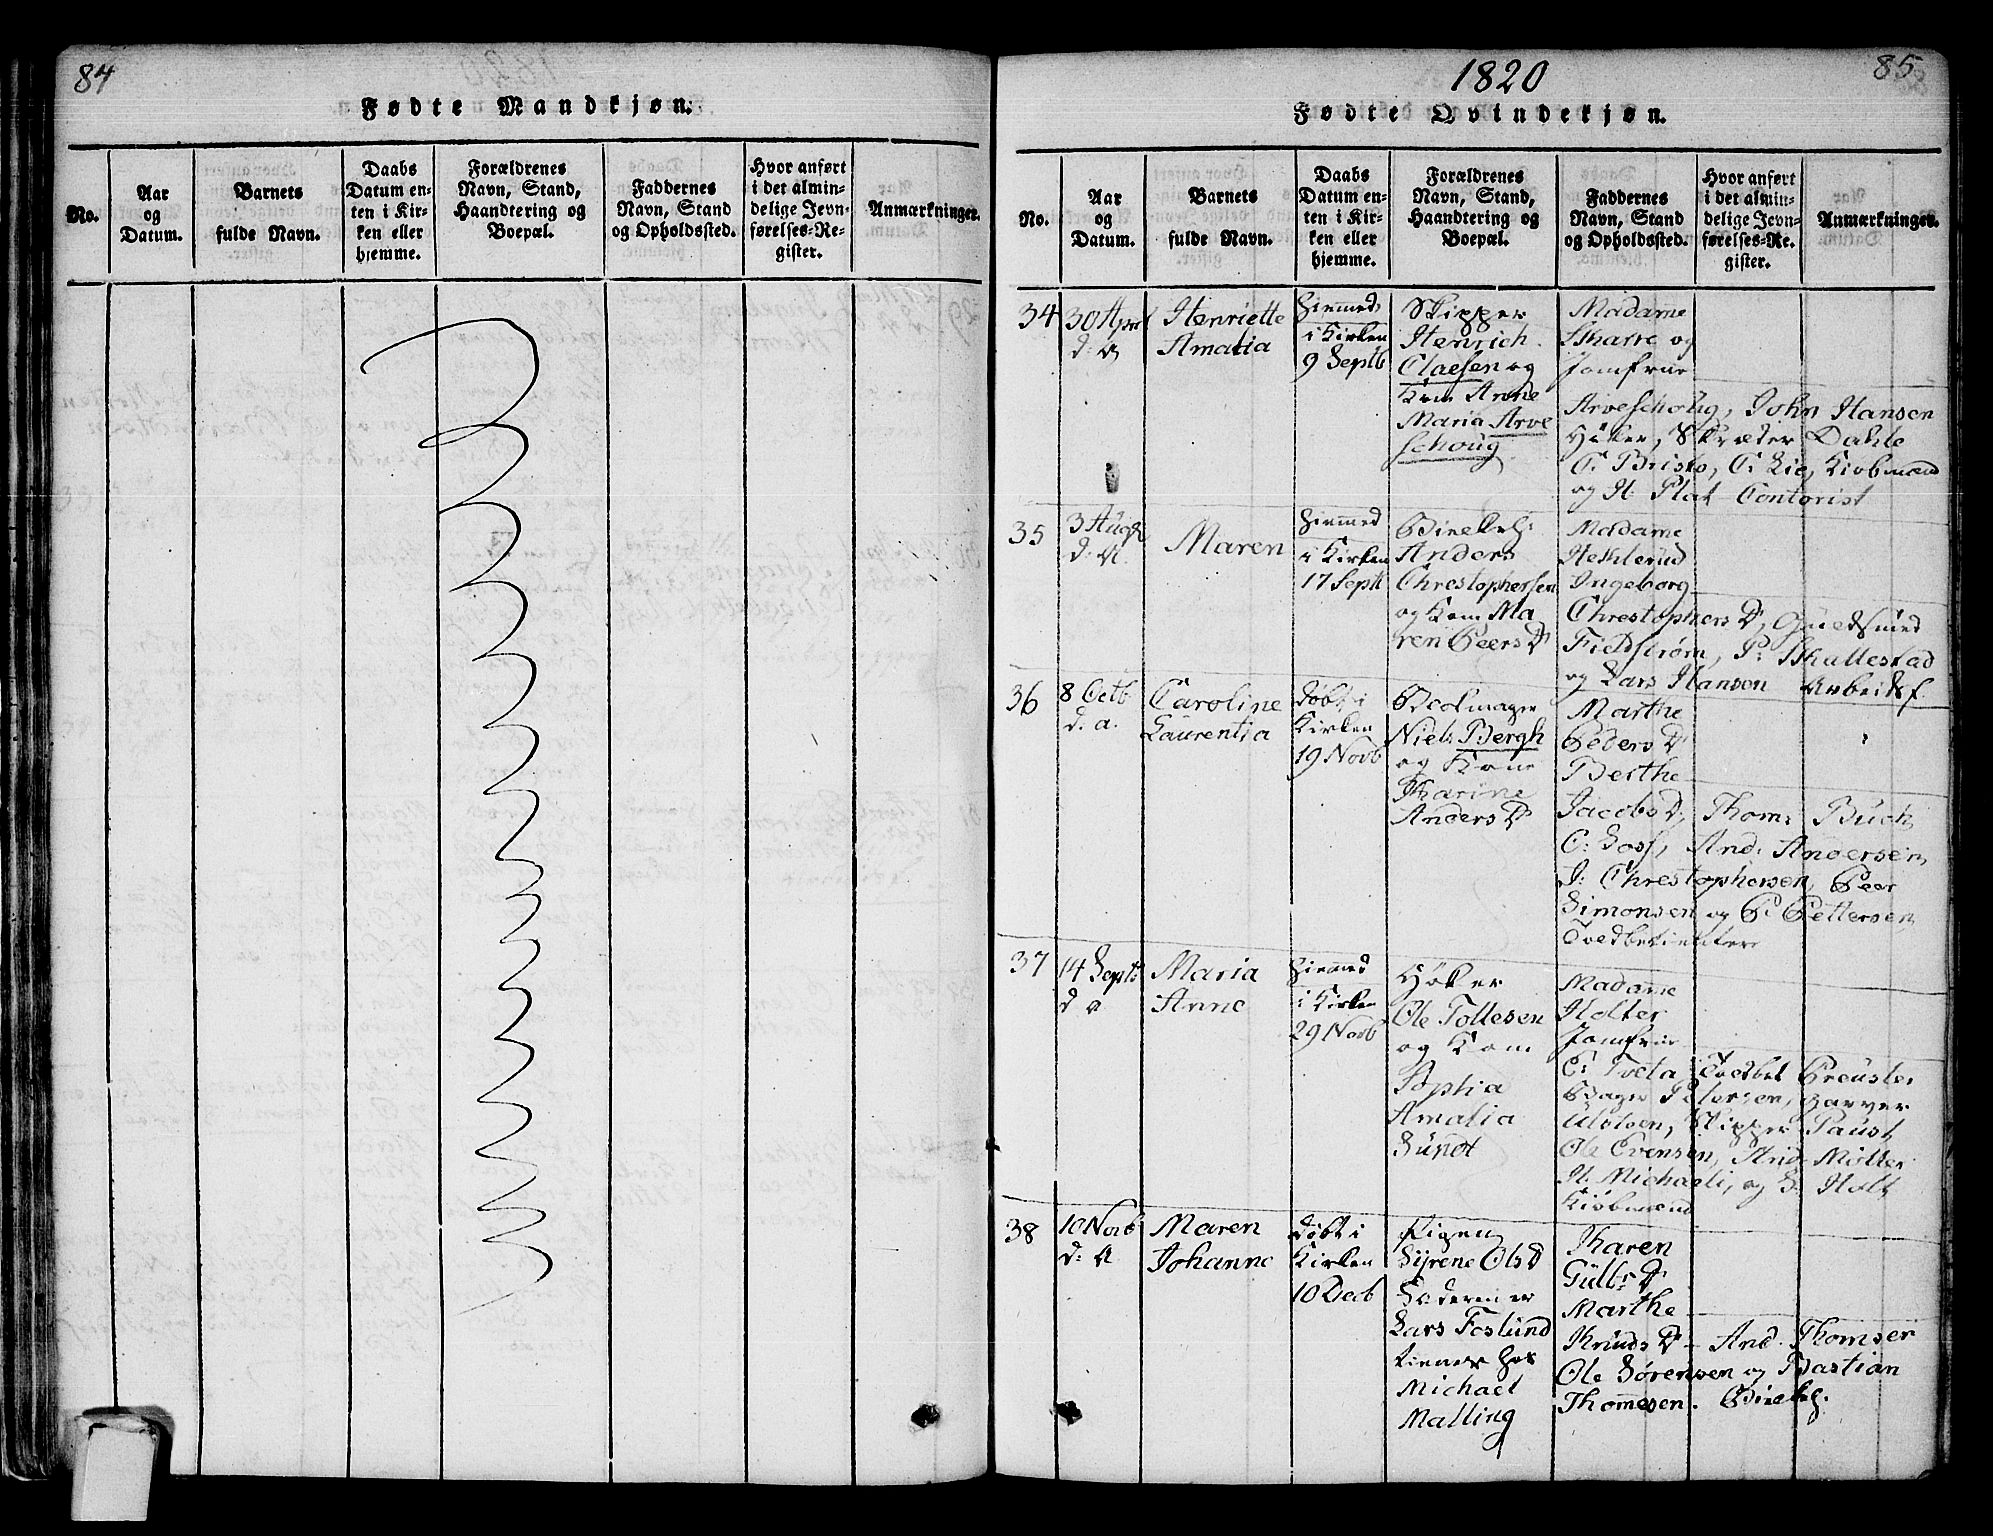 84
Fødte Mandkjøn.
No.
Aar
og
Datum.
Barnets
fulde Navn.
Daabs
Datum en-
ten i Kir-
ken eller
hjemme.
Forældrenes
Navn, Stand,
Haandtering og
Boepæl.
Faddernes
Navn, Stand
og Opholdssted.
Hvor anført
i det almin-
delige Jevn-
førelses-Re-
gister.
Anmærkninger.
1820
85
Fødte Qvindekjøn.
No.
Aar
og
Datum.
Barnets
fulde Navn.
Daabs
Datum en-
ten i Kir-
ken eller
hjemme.
Forældrenes
Navn, Stand,
Haandtering og
Boepæl.
Faddernes
Navn, Stand
og Opholdssted.
Hvor anført
i det almin-
delige Jevn-
førelses-Re-
gister.
Anmærkninger.
34
30 Apr
d: a
Henriette
Amalia
Hiemmed
i Kirken
9 Septb
Skipper
Henrich
Claesen og
Kone Anne
Maria Arve
schoug
Madame
Skarre og
Jomfrue
Arveschoug, John Hansen
Høker, Skræder Dahle
C: Bristo, C: Lie, Kiøbmænd
og H: Plat Contorist
35
3 Aug
d: A.
Maren
Hiemmed
i Kirken
17 Septb
Anders
Christophersen
og Kone Ma
ren Peers D
Madame
Hekkerud
Ingeborg
Christophers D, Guldsmed
Fieldstrøm, P: Skallestad
og Lars Hansen Arbeidsf.
36
8 Octb
d. a.
Caroline
Laurentia
døbt i
Kirken
19 Novb
Bødmager
Niels Bergh
og Kone
Karine
Anders D
Marthe
Peders D
Berthe
Jacobs D, Thom: Buch,
And: Andersen,
J: Christophersen, Peer
Simonsen og P: Pettersen,
Toldbetienter
37
14 Septb
d a
Maria
Anne
Hiemmed
i Kirken
29 Novb
Høker
Ole Tollesen
og Kone
Sophia
Amalia
Sundt
Madame
Holter
Jomfrue
C: Tveta, Toldbet
Bager Petersen, Garver
Ulolsen, Skipper Paust,
Ole Evensen, And: Møller
H. Michaeli, og S. Holt
Kiøbmænd
38
10 Novb
d: A
Maren
Johanne
døbt i
Kirken
10 Decb
Pigen
Syrene Ols D
Faderen er
Lars Foslund
tiener hos
Michael
Malling
Karen
Gulbr D
Marthe
Knuds D - And. Thomsen
Ole Sørensen og Bastian
Thomesen.